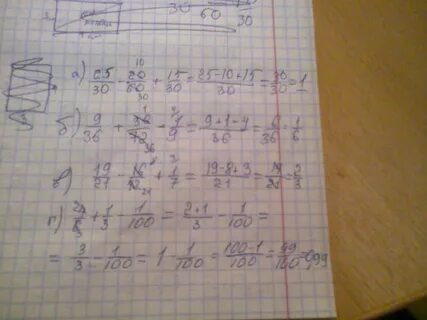 30
60
30
а) 25/30 - 20/60 + 15/30 = 25-10+15/30 = 30/30 = 1
б) 9/36 + /72 - 1/9 = 9+1-4/36 = 6/36 = 1/6
в) 19/21 - 16/42 + 1/7 = 19-8+3/21 = 14/21 = 2/3
г) 2/3 + 1/3 - 1/100 = 2+1/3 - 1/100 =
= 3/3 - 1/100 = 1 - 1/100 = 100-1/100 = 99/100 = 0,99